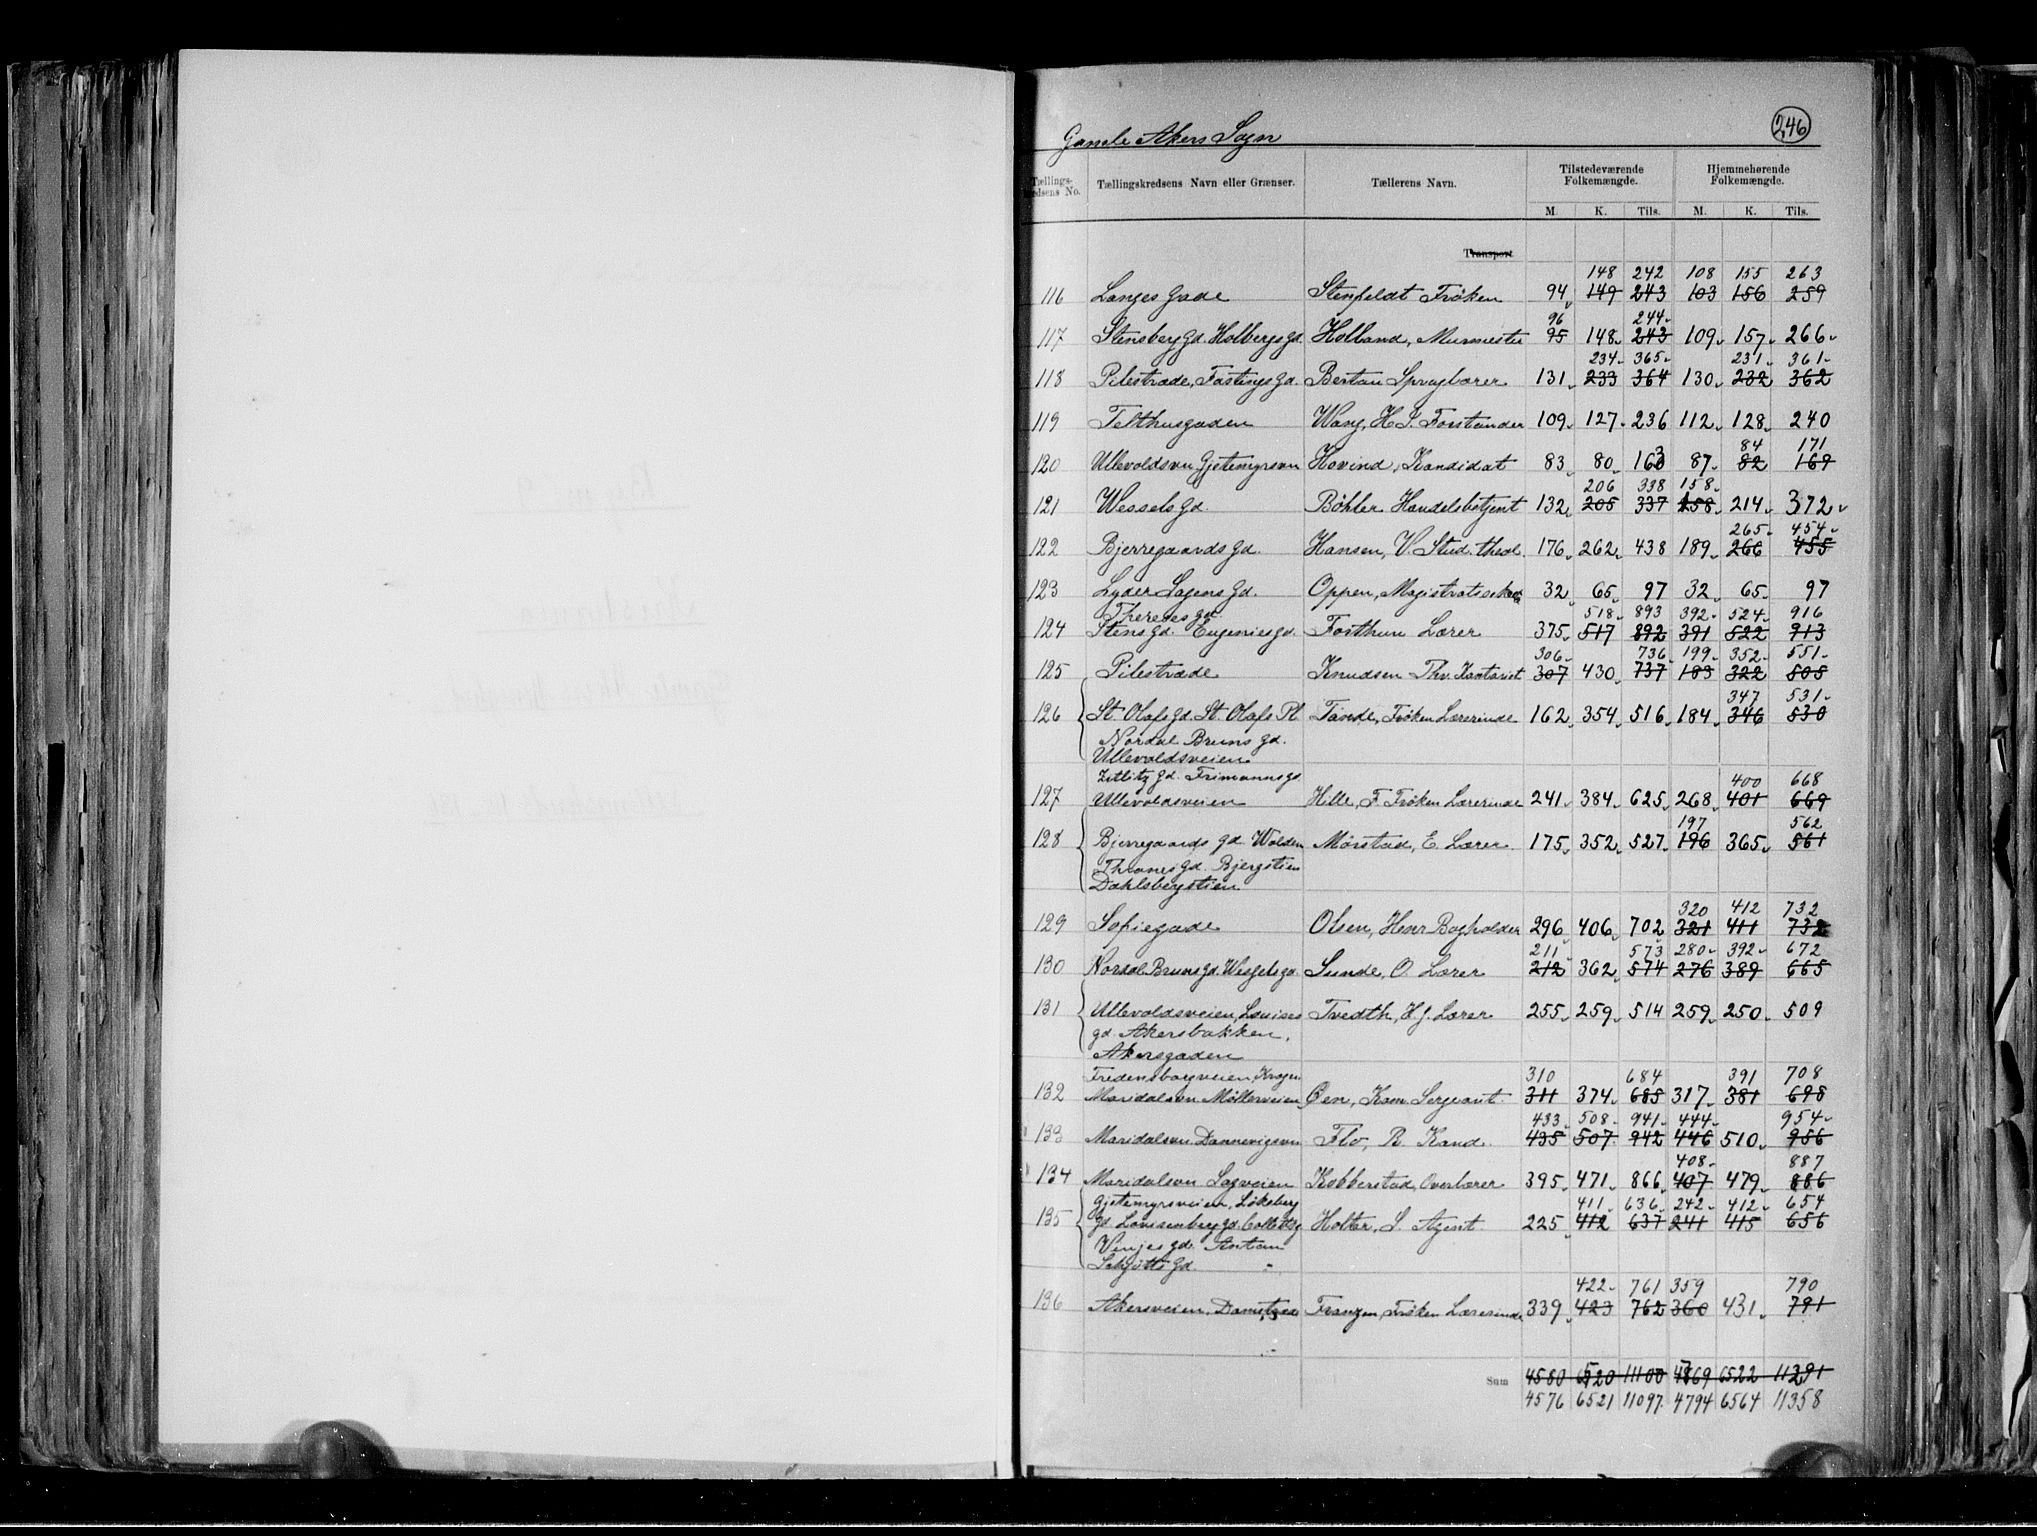 246
Gamle Akers Sogn
Tællings-kredsens No. Tællingskredsens Navn eller Grænser. Tællerens Navn. Tilstedeværende Folkemængde. Hjemmehørende Folkemængde.
M. K. Tils. M. K. Tils.
Transport
148 242 108 155 263
116 Langes Gade Stenfeldt Frøken 94 149 243 103 156 259
96 244
117 Stensberg Gd. Holbergs Gd. Holland, Murmester 95 148 243 109 157 266
234 365 231 361
118 Pilestræde, Fastings Gd. Bertau Sproglærer 131 233 364 130 232 362
119 Telthusgaden Wang, H.J. Forstander 109 127 236 112 128 240
84 171
120 Ullevoldsvn Gjetemyrsvn Hovind, Kandidat 83 80 163 87 82 169
206 338 158
121 Wessels Gd. Bøhler Handelsbetjent 132 205 337 158 214 372
265 454
122 Bjerregaards Gd. Hansen, V. Stud. theol. 176 262 438 189 266 455
123 Lyder Sagens Gd. Oppen, Magistratssekr. 32 65 97 32 65 97
Thereses gd. 518 893 392 524 916
124 Stens gd. Eugenies gd. Forthun Lærer 375 517 892 391 522 913
306 736 199 352 551
125 Pilestræde Knudsen Thv. Kontorist 307 430 737 183 322 505
347 531
126 St. Olafs Gd. St. Olafs Pl. Tande, Frøken Lærerinde 162 354 516 184 346 530
Nordal Bruns gd.
Ullevoldsveien
Zetlitz Gd. Frimanns gd. 400 668
127 Ullevoldsveien Hille, F. Frøken Lærerinde 241 384 625 268 401 669
197 562
128 Bjerregaards gd. Wolden Mørstad, E. Lærer 175 352 527 196 365 561
Thranes Gd. Bjergstien
Dahlsbergstien
320 412 732
129 Sofiegade Olsen, Henr Bogholder 296 406 702 321 411 732
211 573 280 392 672
130 Nordal Bruns gd. Wessels gd. Sunde, O. Lærer 212 362 574 276 389 665
131 Ullevoldsveien, Louises Tvedth, H.J. Lærer 255 259 514 259 250 509
gd Akersbakken,
Akersgaden
Fredensborgveien, Krogen 310 684 391 708
132 Maridalsvn Møllerveien Øen, Kom Sergeant 311 374 685 317 381 698
433 508 941 444 954
133 Maridalsvn Dannevigsvn Flo, R. Kand. 435 507 942 446 510 956
408 887
134 Maridalsvn Sagveien Kobberstad, Overlærer 395 471 866 407 479 886
Gjetemyrsveien, Løkeberg 411 636 242 412 654
135 Gd. Lovisenberg gd. Colletts g Holter, S. Agent 225 412 637 241 415 656
Vinjes gd. Anton
Schjøtts Gd.
422 761 359 790
136 Akersveien, Damstræde Franzen, Frøken Lærerinde 339 423 762 360 431 791
Sum 4580 6520 11100 4769 6522 11291
4576 6521 11097 4794 6564 11358